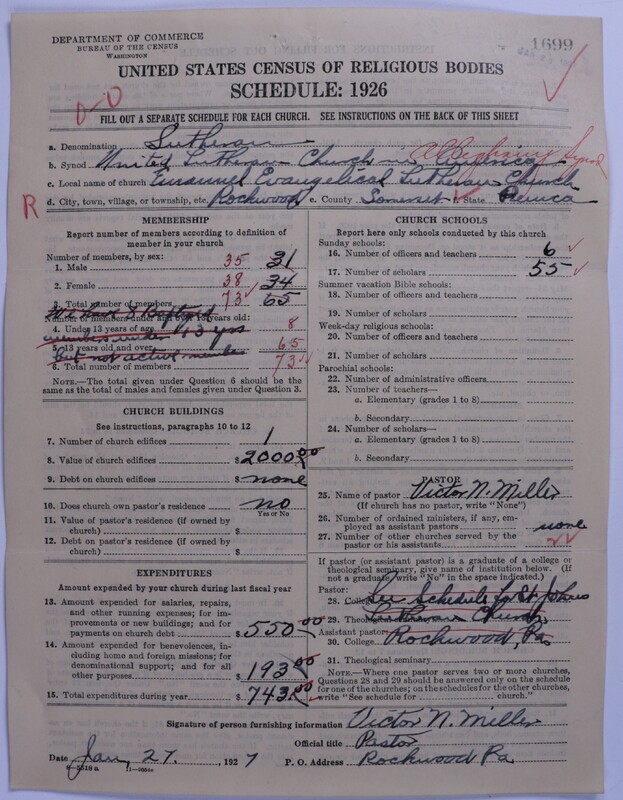 DEPARTMENT OF COMMERCE
BUREAU OF THE CENSUS
WASHINGTON
1699
UNITED STATES CENSUS OF RELIGIOUS BODIES
SCHEDULE: 1926
FILL OUT A SEPARATE SCHEDULE FOR EACH CHURCH. SEE INSTRUCTIONS ON THE BACK OF THIS SHEET
a. Denomination Lutheran
b. Synod United Lutheran Church in America Allegheny Synod
c. Local name of church Emanuel Evangelical Lutheran Church
R d. City, town, village, or township, etc. Rockwood e. County Somerset f. State Penna
MEMBERSHIP
Report number of members according to definition of member in your church
Number of members, by sex:
1. Male 35 31
2. Female 38 34
3. Total number of members 73 65
We have 8 Baptized
Number of members under and over 13 years old:
4. Under 13 years of age 8
members under 13 yrs
5. 13 years old and over 65
but not active members
6. Total number of members 73
NOTE.—The total given under Question 6 should be the same as the total of males and females given under Question 3.
CHURCH BUILDINGS
See instructions, paragraphs 10 to 12
7. Number of church edifices 1
8. Value of church edifices $ 2000.00
9. Debt on church edifices $ none
10. Does church own pastor's residence no
Yes or No
11. Value of pastor's residence (if owned by church) $
12. Debt on pastor's residence (if owned by church) $
EXPENDITURES
Amount expended by your church during last fiscal year
13. Amount expended for salaries, repairs, and other running expenses; for improvements or new buildings; and for payments on church debt $ 550.00
14. Amount expended for benevolences, including home and foreign missions; for denominational support; and for all other purposes $ 193.00
15. Total expenditures during year $ 743.00
CHURCH SCHOOLS
Report here only schools conducted by this church
Sunday schools:
16. Number of officers and teachers 6
17. Number of scholars 55
Summer vacation Bible schools:
18. Number of officers and teachers
19. Number of scholars
Week-day religious schools:
20. Number of officers and teachers
21. Number of scholars
Parochial schools:
22. Number of administrative officers
23. Number of teachers—
a. Elementary (grades 1 to 8)
b. Secondary
24. Number of scholars—
a. Elementary (grades 1 to 8)
b. Secondary
PASTOR
25. Name of pastor Victor N. Miller
(If church has no pastor, write "None")
26. Number of ordained ministers, if any, employed as assistant pastors none
27. Number of other churches served by the pastor or his assistants
If pastor (or assistant pastor) is a graduate of a college or theological seminary, give name of institution below. (If not a graduate write "No" in the space indicated.)
Pastor:
28. College See Schedule for St. Johns
29. Theological Lutheran Church
Assistant pastor:
30. College Rockwood, Pa.
31. Theological seminary
NOTE.—Where one pastor serves two or more churches, Questions 28 and 29 should be answered only on the schedule for one of the churches; on the schedules for the other churches, write "See schedule for church."
Signature of person furnishing information Victor N. Miller
Official title Pastor
Date Jan, 27, 1927 P. O. Address Rockwood Pa.